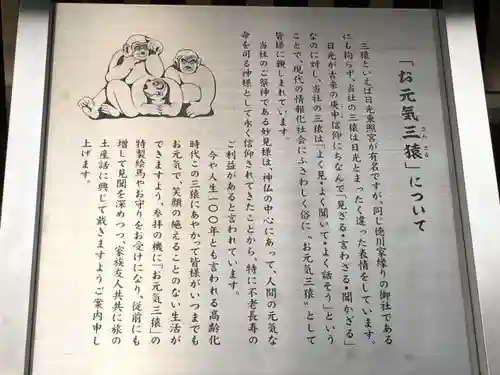 「お元気三猿」について
さんざる
三猿といえば日光東照宮が有名ですが、同じ徳川家縁りの御社である
にも拘らず、当社の三猿は日光とまったく違った表情をしています。
日光が古来の庚申信仰にちなんで「見ざる・言わざる・聞かざる」
なのに対し、当社の三猿は「よく見・よく聞いて・よく話そう」という
ことで、現代の情報化社会にふさわしく俗に〝お元気三猿〟として
皆様に親しまれています。
当社のご祭神である妙見様は、神仏の中心にあって、人間の元気な
命を司る神様として永く信仰されてきたことから、特に不老長寿の
ご利益があると言われています。
今や人生一〇〇年とも言われる高齢化
時代、この三猿にあやかって皆様がいつまでも
お元気で、笑顔の絶えることのない生活が
できますよう、参拝の機に「お元気三猿」の
特製絵馬やお守りをお受けになり、従前にも
増して見聞を深めつつ、家族友人共共に旅の
土産話に興じて戴きますようご案内申し
上げます。